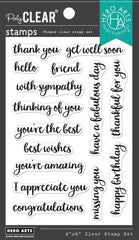 Poly CLEAR
stamps
HERO ARTS
HA
thank you
get well soon
hello
friend
with sympathy
thinking of you
you're the best
best wishes
you're amazing
I appreciate you
congratulations
have a fabulous day
thankful for you
missing you
happy birthday
HERO ARTS
4"x6" Clear Stamp Set